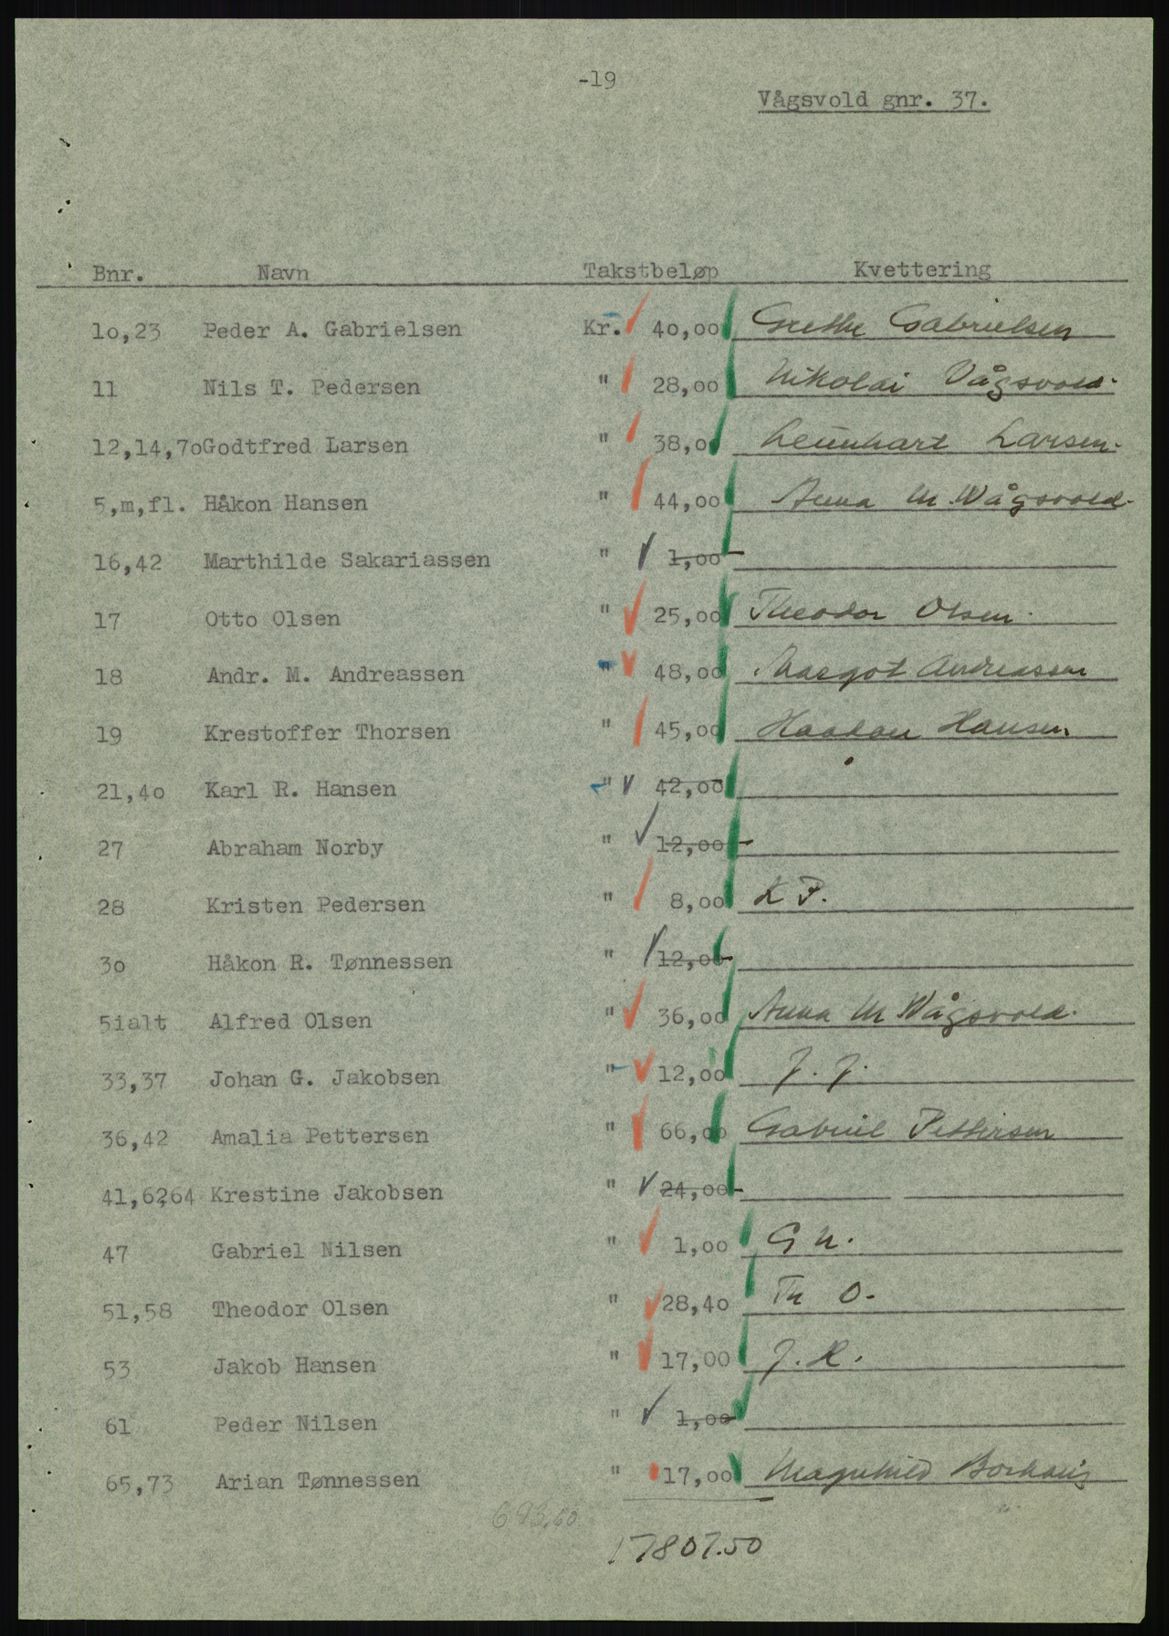 -19
Vågsvold gnr. 37.
Bnr. Navn Takstbeløp Kvettering
1o,23 Peder A. Gabrielsen Kr. 4o,oo Grethe Gabrielsen
11 Nils T. Pedersen " 28,oo Nikolai Vågsvold.
12,14,7oGodtfred Larsen " 38,oo Leonhart Larsen.
5,m,fl. Håkon Hansen " 44,oo Anna M. Wågsvold.
16,42 Marthilde Sakariassen " 1,oo
17 Otto Olsen " 25,oo Theodor Olsen.
18 Andr. M. Andreassen " 48,oo Margot Andreassen
19 Krestoffer Thorsen " 45,oo Haakon Hansen
21,4o Karl R. Hansen " 42,oo
27 Abraham Norby " 12,oo
28 Kristen Pedersen " 8,oo K P.
3o Håkon R. Tønnessen " 12,oo
5ialt Alfred Olsen " 36,oo Anna M Wågsvold.
33,37 Johan G. Jakobsen " 12,oo J. J.
36,42 Amalia Pettersen " 66,oo Gabriel Pettersen
41,6264 Krestine Jakobsen " 24,oo
47 Gabriel Nilsen " 1,oo G N.
51,58 Theodor Olsen " 28,4o Th O.
53 Jakob Hansen " 17,oo J. H.
61 Peder Nilsen " 1,oo
65,73 Arian Tønnessen " 17,oo Magnhild
17807.50